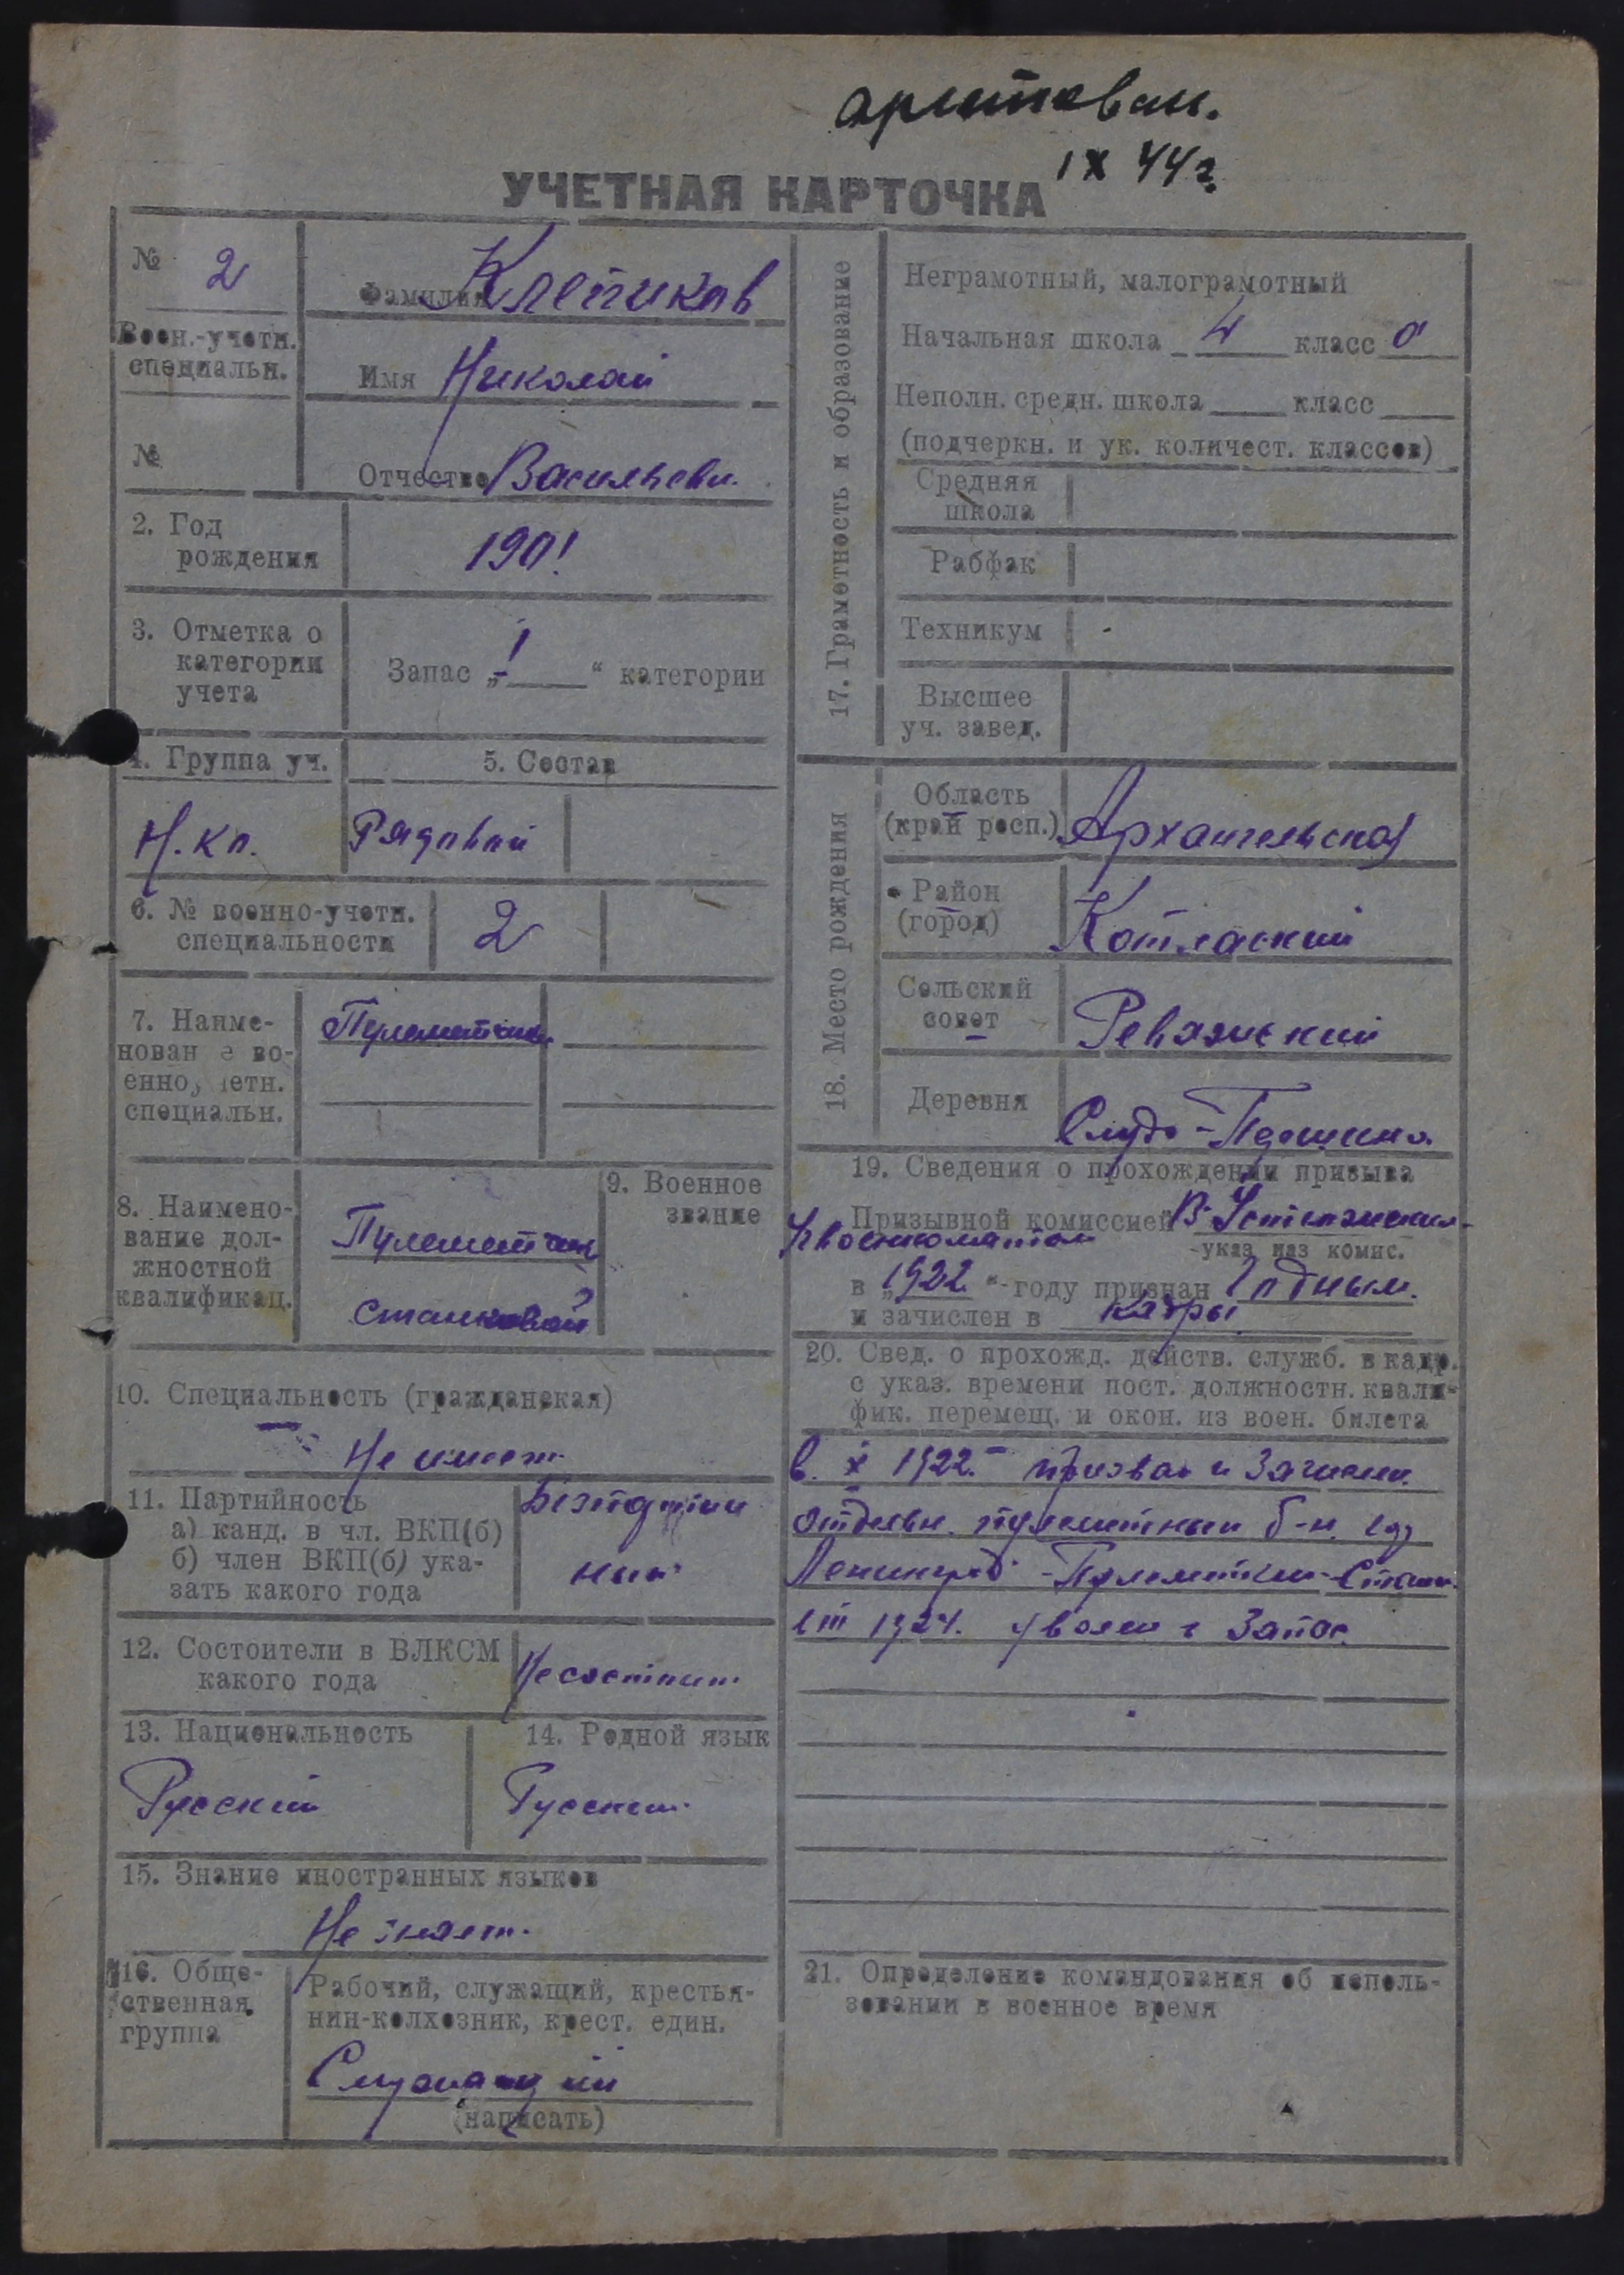 IX 44 г.
УЧЕТНАЯ КАРТОЧКА
№ 2
Воен.-учетн.
специальн.
№
Фамилия Клепиков
Имя Николай
Отчество Васильеви.
2. Год
рождения
1901
3. Отметка о
категории
учета
Запас „1“ категории
4. Группа уч.
Н.кл.
5. Состав
Рядовой
6. № военно-учетн.
специальности
2
7. Наиме-
нован е во-
енно, четн.
специальн.
Пулеметчик
8. Наимено-
вание дол-
жностной
квалификац.
Пулеметчик
станковой
9. Военное
звание
10. Специальность (гражданская)
Не имеет
11. Партийность
а) канд. в чл. ВКП(б)
б) член ВКП(б) ука-
зать какого года
Безпартий
ный
12. Состоители в ВЛКСМ
какого года
Не состоит
13. Национальность
Русский
14. Родной язык
Русский
15. Знание иностранных языков
Не знает.
16. Обще-
ственная
группа
Рабочий, служащий, крестья-
нин-колхозник, крест. един.
Служащий
(написать)
17. Грамотность и образование
Неграмотный, малограмотный
Начальная школа 4 класс а
Неполн. средн. школа класс
(подчеркн. и ук. количест. классов)
Средняя
школа
Рабфак
Техникум
Высшее
уч. завед.
18. Место рождения
Область
(край респ.)
Архангельская
Район
(город)
Котласский
Сельский
совет
Ревазский
Деревня
19. Сведения о прохождении призыва
Призывной комиссией В-Устюгским
Увоенкоматом
указ наз комис.
в „1922“ году признан Годным.
и зачислен в кадры
20. Свед. о прохожд. действ. служб. в кадр.
с указ. времени пост. должностн. квали-
фик. перемещ. и окон. из воен. билета
в X 1922 призван и Зачислен.
отдельн. пулеметный б-н. гор
Ленинград - Пулеметчик-Станк.
в III 1924. уволен в Запас.
21. Определение командования об исполь-
зовании в военное время